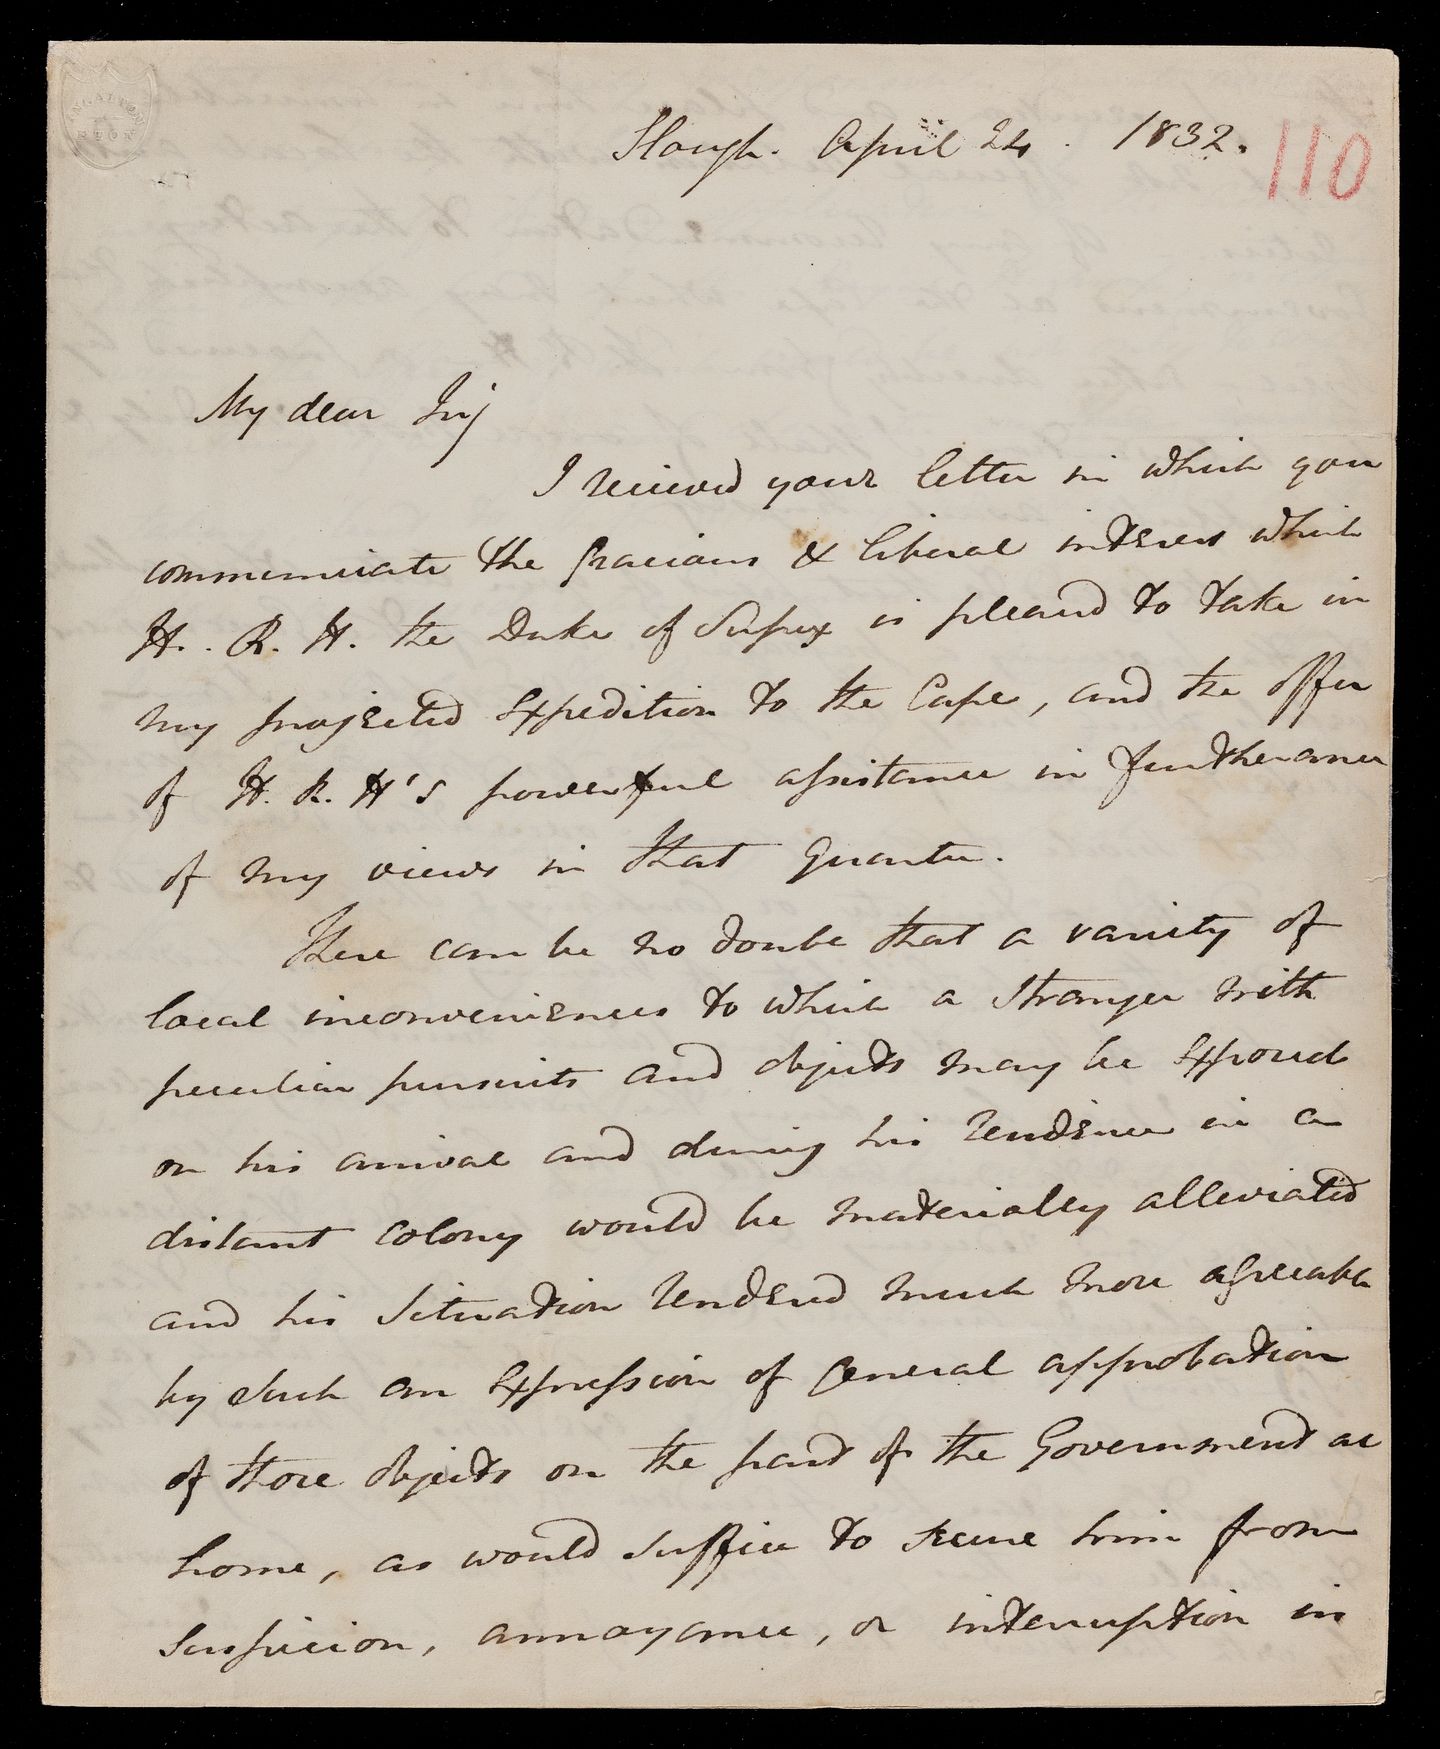 INGALTON
ETON
Slough. April 24. 1832.
110
My dear Sir,
I received your letter in which you
communicate the gracious & liberal interest which
H. R. H. the Duke of Sussex is pleased to take in
my projected Expedition to the Cape, and the offer
of H. R. H's powerful assistance in furtherance
of my views in that Quarter.
There can be no doubt that a variety of
local inconveniences to which a Stranger with
peculiar pursuits and objects may be exposed
on his arrival and during his residence in a
distant Colony would be materially alleviated
and his Situation rendered much more agreeable
by such an expression of General approbation
of those objects on the part of the Government at
home, as would suffice to secure him from
Suspicion, annoyance, or interruption in